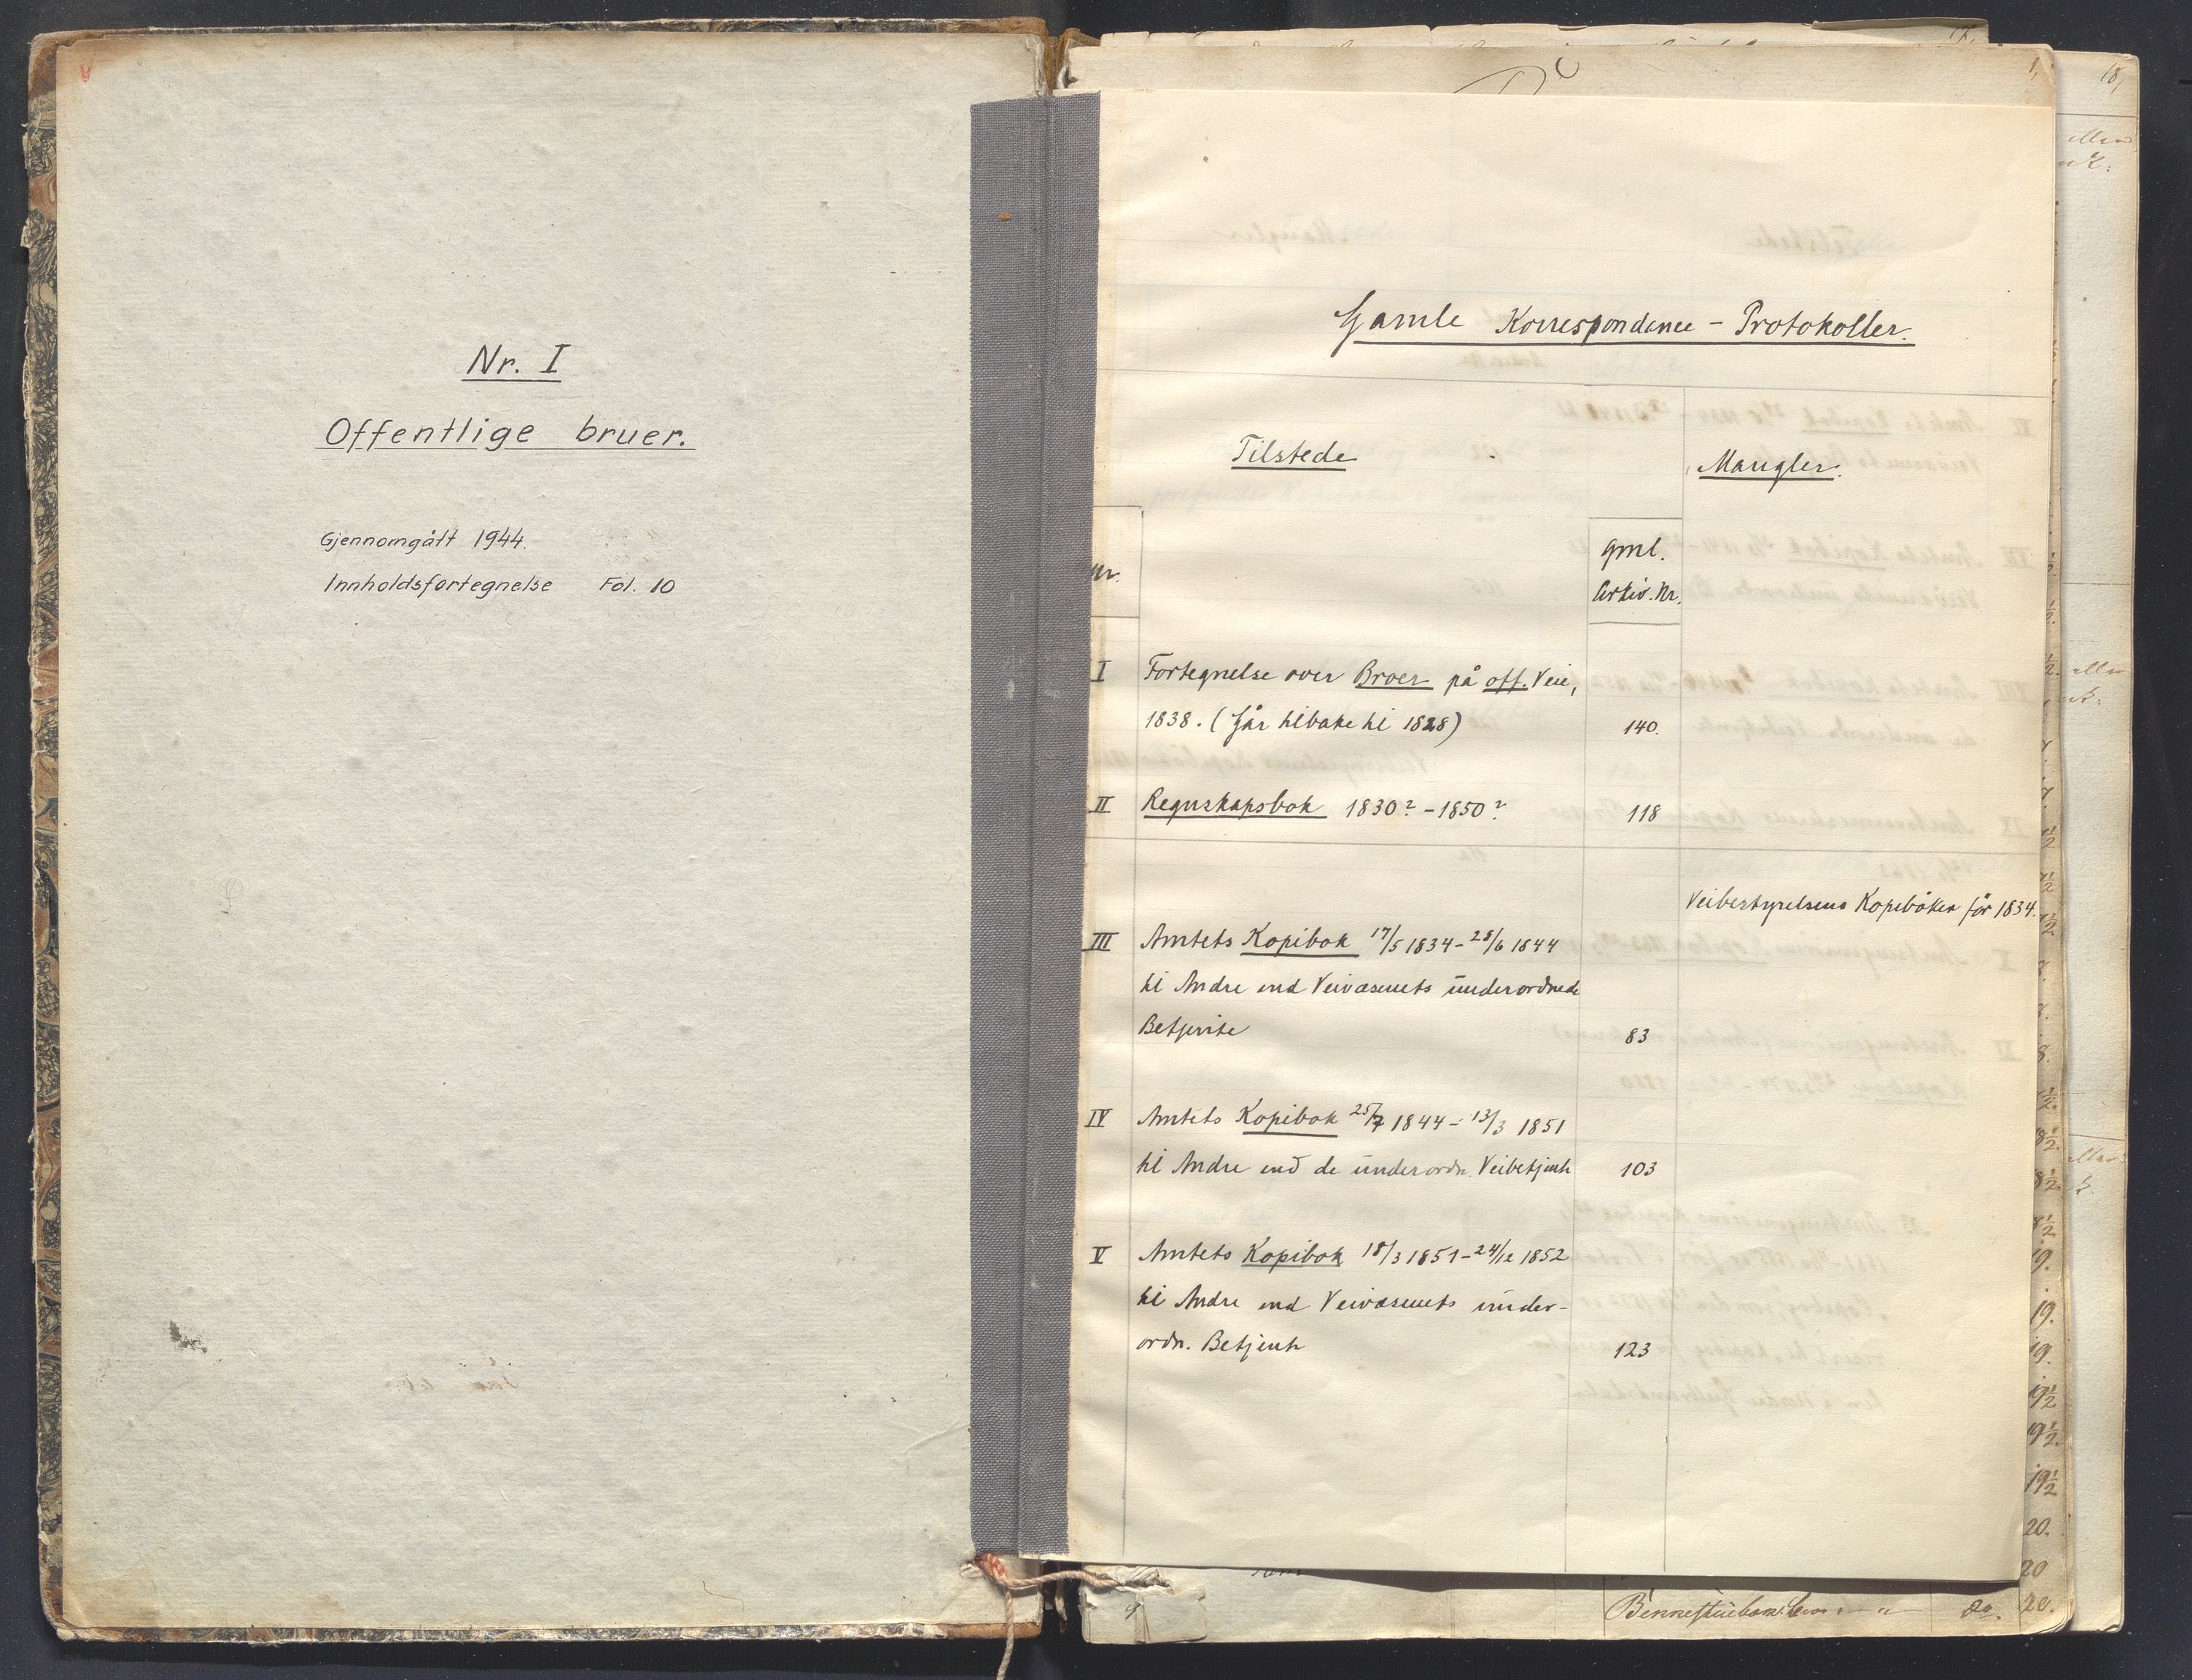 Nr. I
Offentlige bruer.
Gjennomgått 1944.
Innholdsfortegnelse Fol. 10
Gamle Korrespondance - Protokoller.
Tilstede
Mangler.
Nr.
gml.
Arkiv.Nr.
I Fortegnelse over Broer på off. Veie,
1838. (går tilbake til 1828) 140.
II Regnskapsbok 1830? - 1850? 118
Veibestyrelsens Kopibøker før 1834.
III Amtets Kopibok 17/5 1834 - 28/6 1844
til Andre end Veivæsenets underordnede
Betjente 83
IV Amtets Kopibok 25/7 1844 - 13/3 1851
til Andre end de underordn. Veibetjente 103
V Amtets Kopibok 18/3 1851 - 24/12 1852
til Andre end Veivæsenets under-
ordn. Betjente 123
18,
19.
19.
19.
19½
19½
19½
20.
20
20. 20.